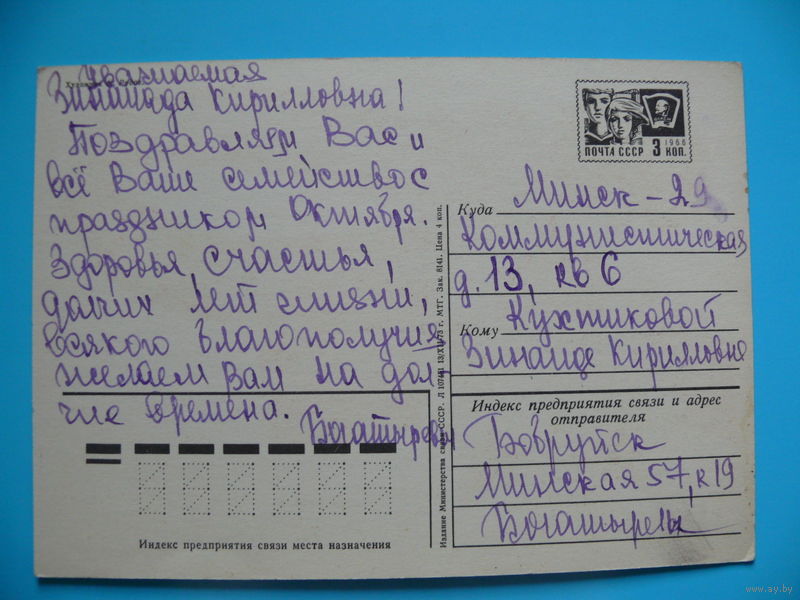 Уважаемая
Зинаида Кирилловна!
Поздравляем Вас и
всё Ваше семейство с
праздником Октября.
Здоровья, счастья,
долгих лет жизни,
всякого благополучия
желаем Вам на дол-
гие времена.
Богатыревы
ПОЧТА СССР 3 КОП.
1966
Куда Минск-29
Коммунистическая
д. 13, кв 6
Кому Кухтиковой
Зинаиде Кирилловне
Индекс предприятия связи и адрес
отправителя
Бобруйск
Минская 57, к 19
Богатыревы
Издание Министерства связи СССР. 13/XII-73 г. МТГ. Зак. 8141. Цена 4 коп.
Индекс предприятия связи места назначения
www.ay.by